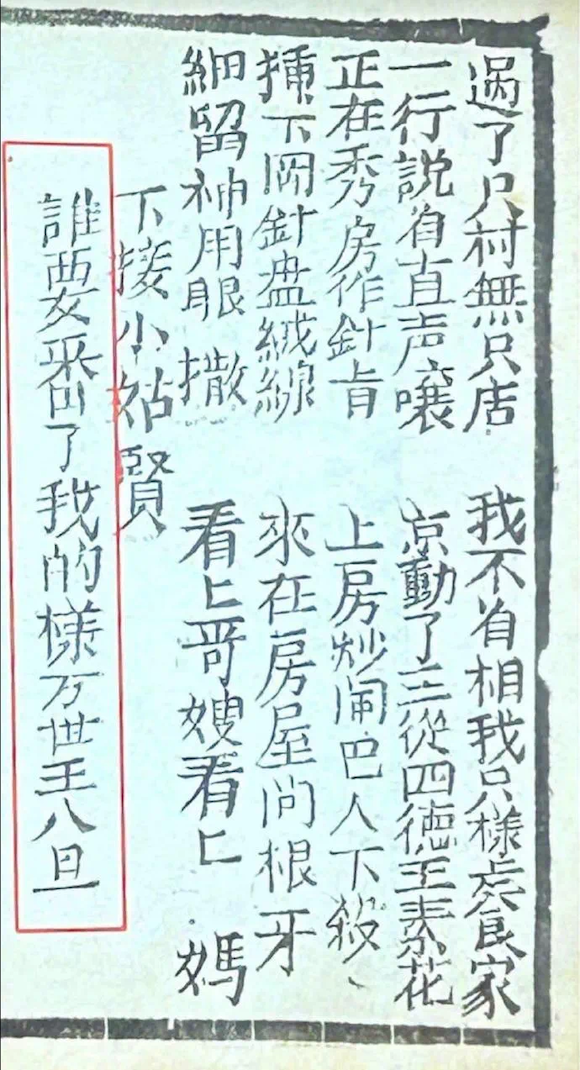 過了只村無只店 我不省相我只樣食家
一行說省直声嚷 京動了三從四德王素花
正在秀房作針肯 上房炒闹巴人下殺
揷下岡針盘絨線 來在房屋问根牙
細留神用眼撒 看匕哥嫂看匕媽
下接小姑賢
誰要番了我的樣万世王八旦